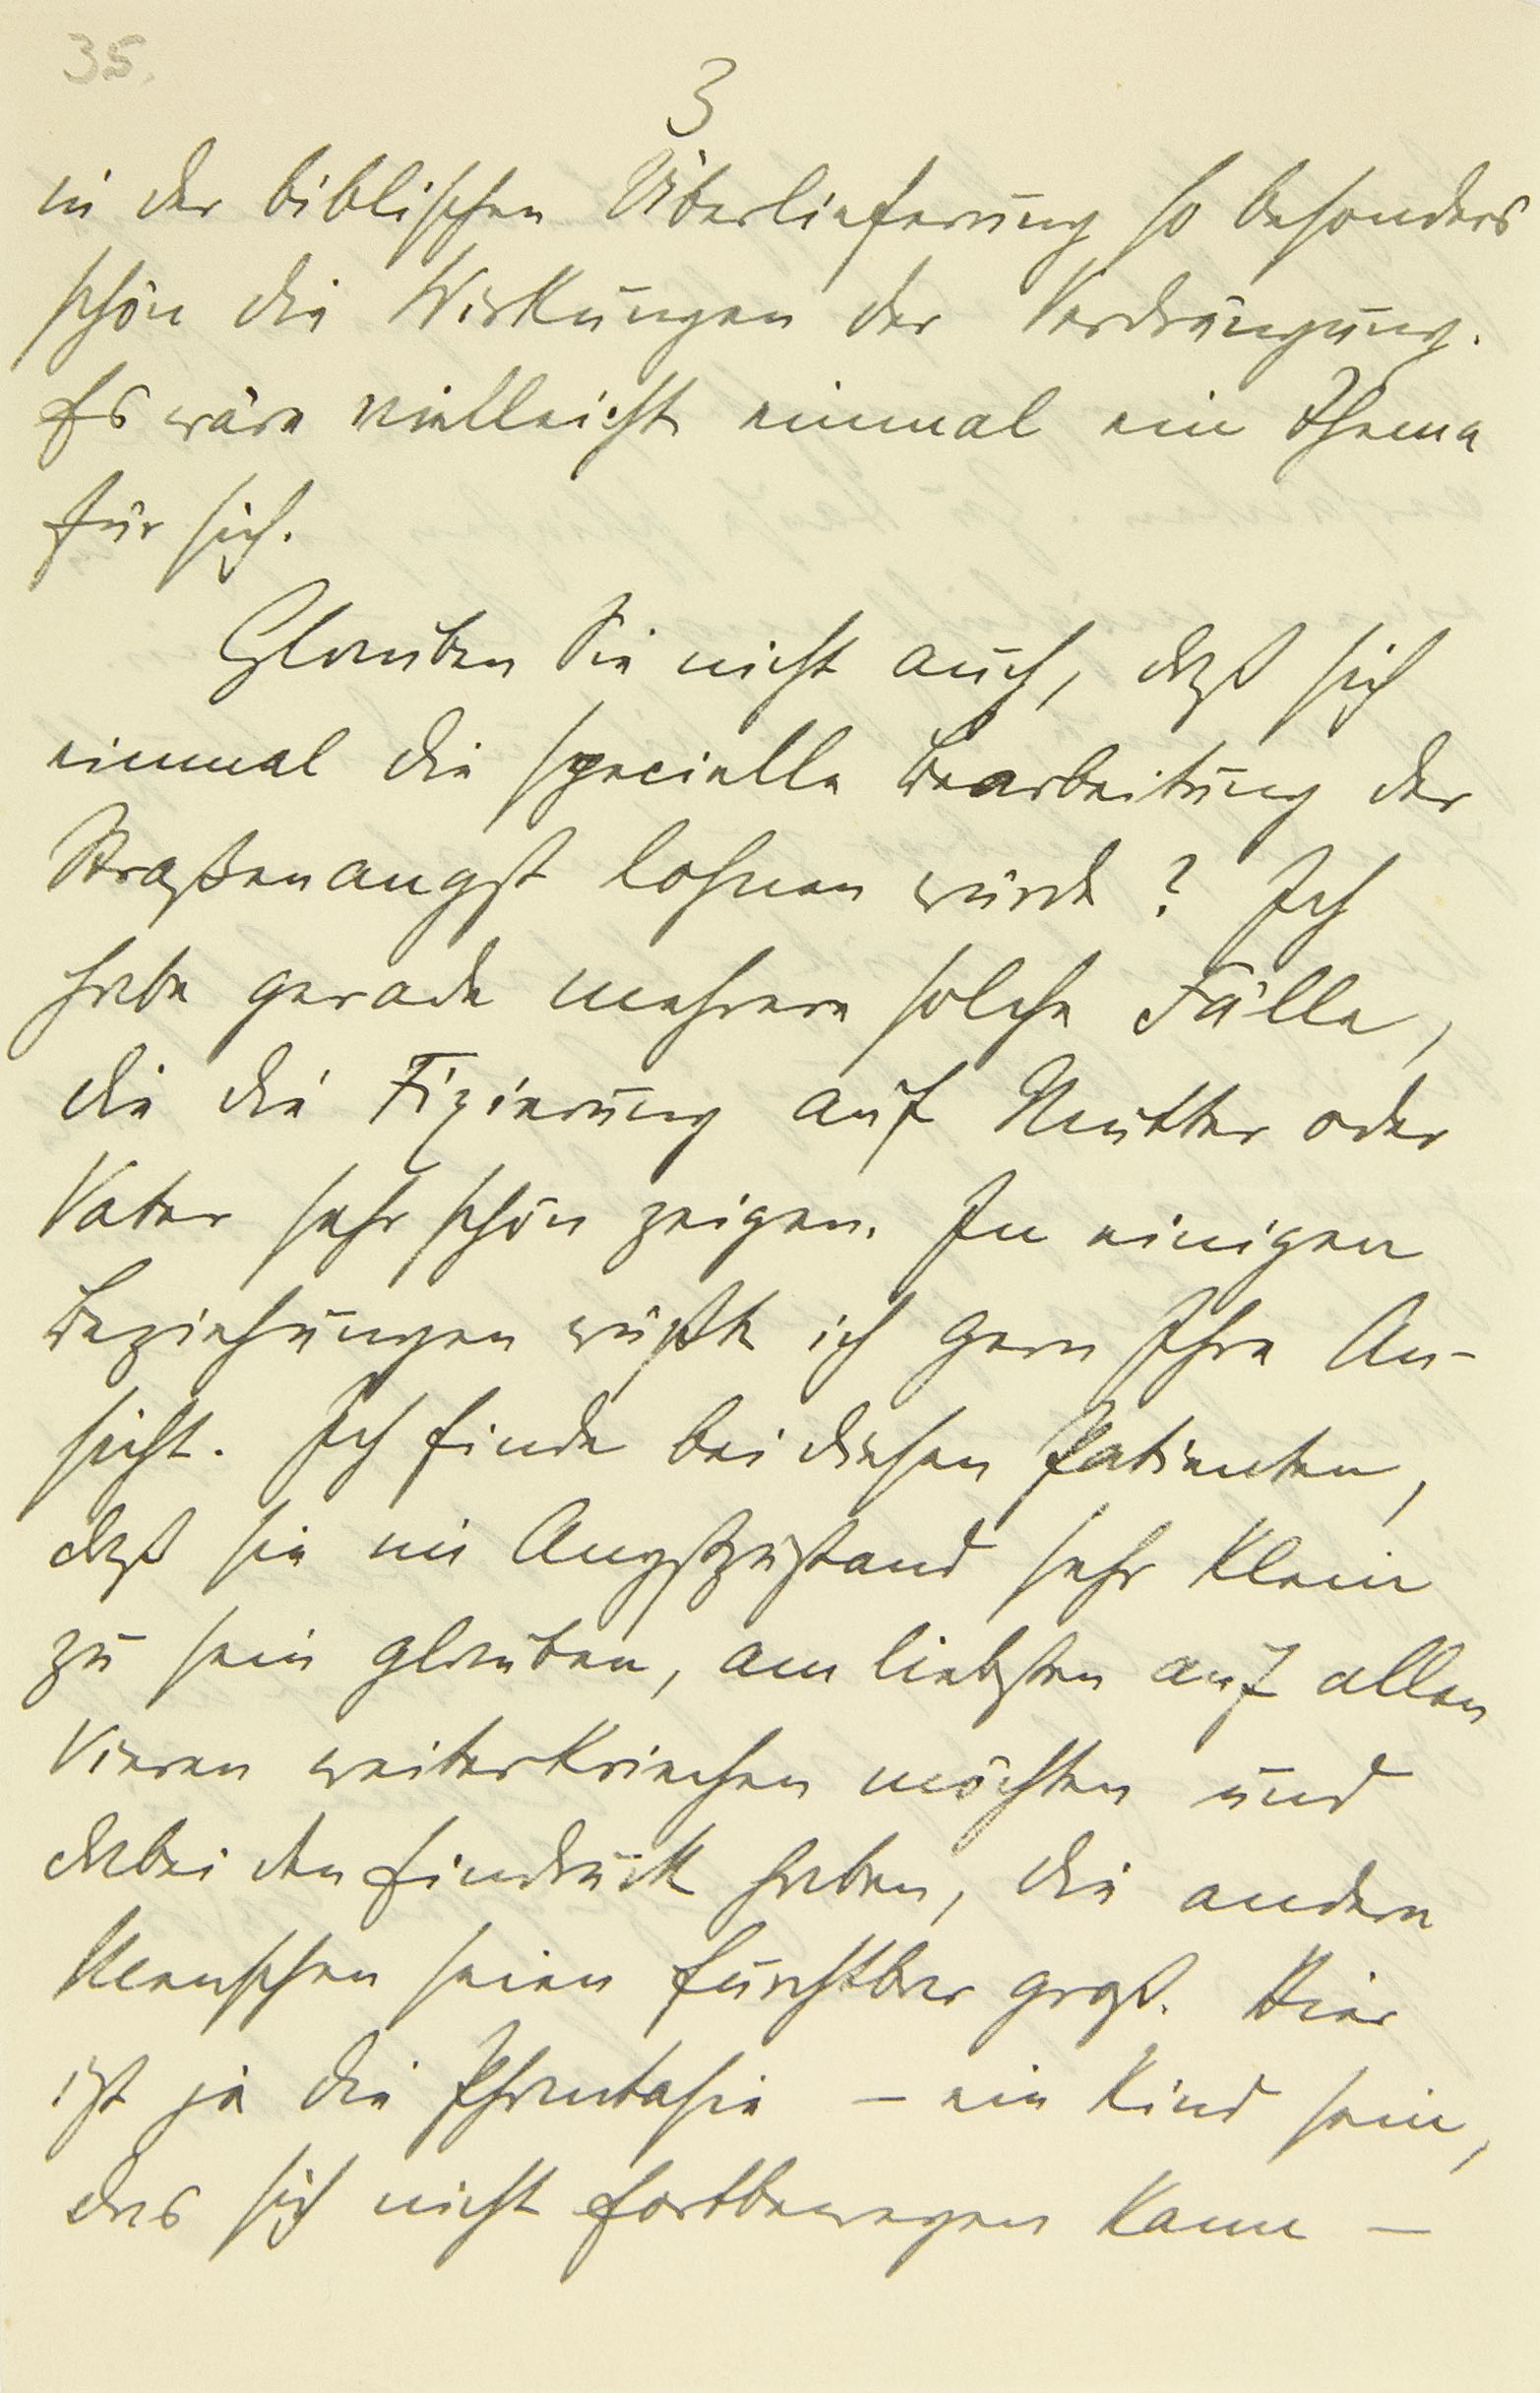 35.
3
in der biblischen Überlieferung so besonders
schön die Wirkungen der Verdrängung.
Es wäre vielleicht einmal ein Thema
für sich.
Glauben Sie nicht auch, daß sich
einmal die specielle Bearbeitung der
Straßenangst lohnen würde? Ich
habe gerade mehrere solche Fälle,
die die Fixierung auf Mutter oder
Vater sehr schön zeigen. In einigen
Beziehungen wüßte ich gern Ihre An-
sicht. Ich finde bei diesen Patienten,
daß sie im Angstzustand sehr klein
zu sein glauben, am liebsten auf allen
Vieren weiterkriechen möchten und
dabei den Eindruck haben, die andern
Menschen seien furchtbar groß. Hier
ist ja die Phantasie – ein Kind sein,
das sich nicht fortbewegen kann –